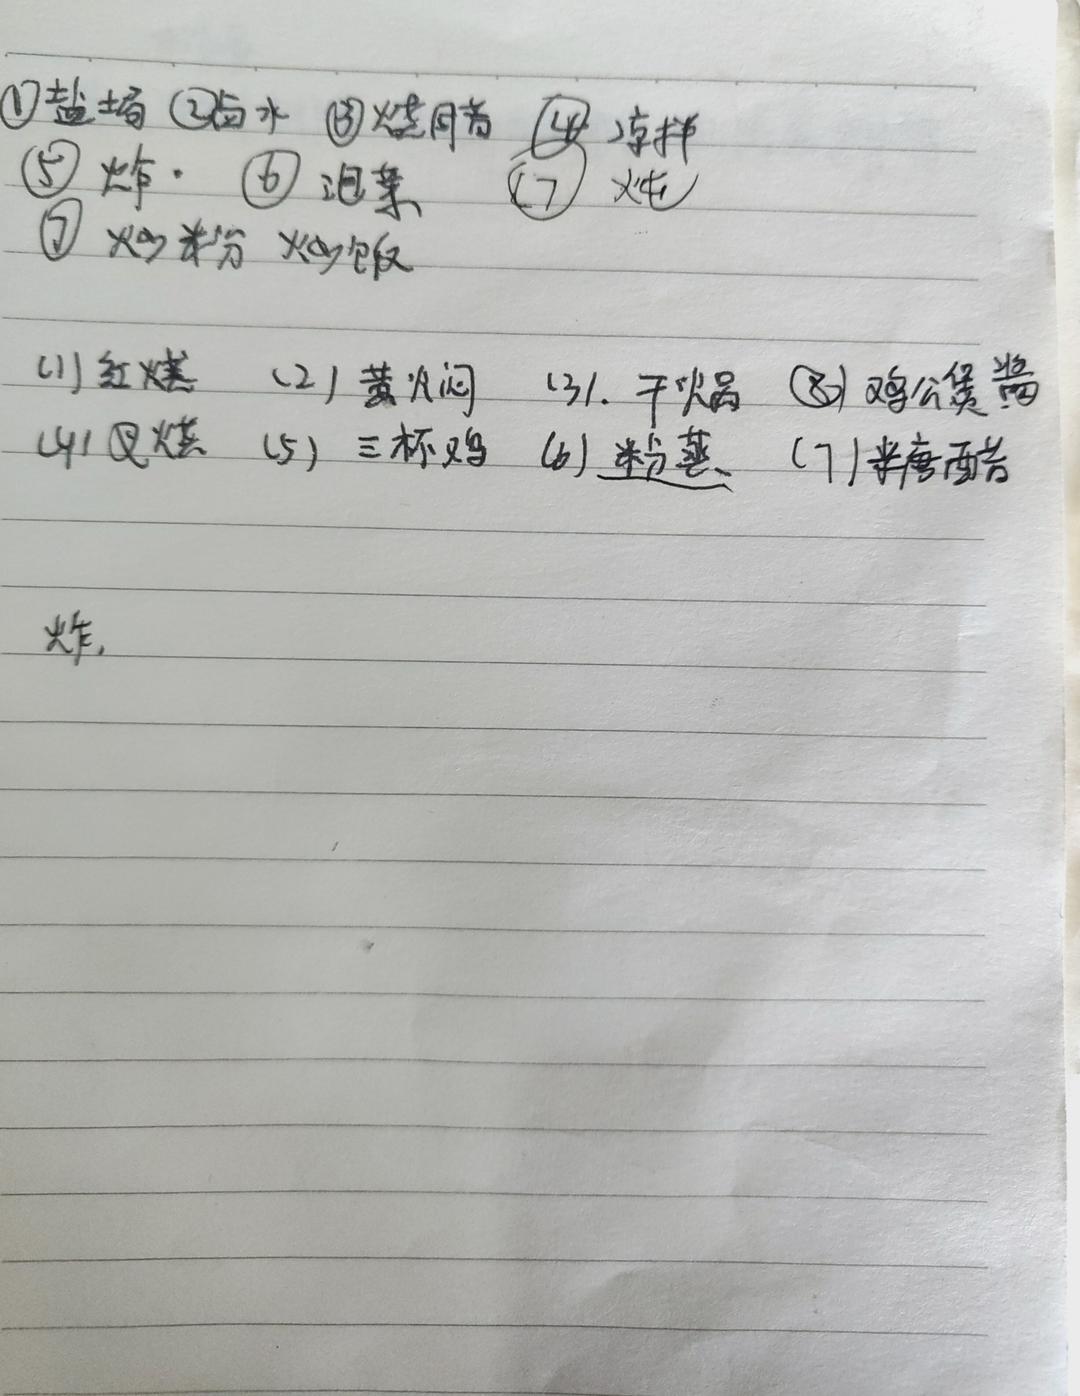 ①盐焗 ②卤水 ③烧腊 ④凉拌
⑤炸. ⑥泡菜 ⑦炖
⑦炒粉 炒饭
(1)红烧 (2)黄焖 (3).干锅 (8)鸡公煲酱
(4)叉烧 (5)三杯鸡 (6)粉蒸、 (7)糖醋
炸.